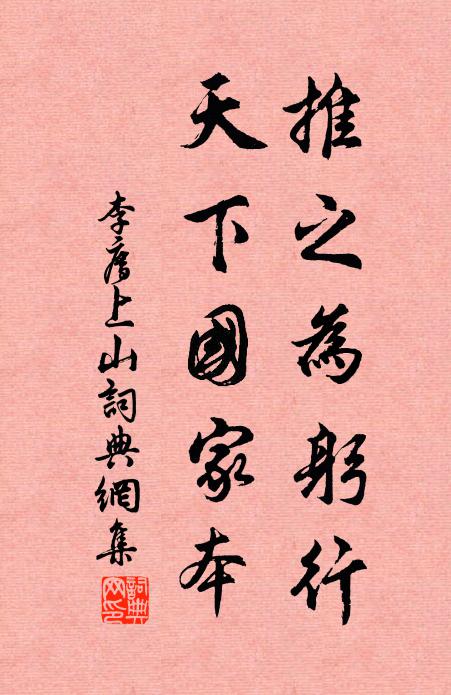 推之為躬行
天下國家本
李唐上山詞典網集
詞典網印